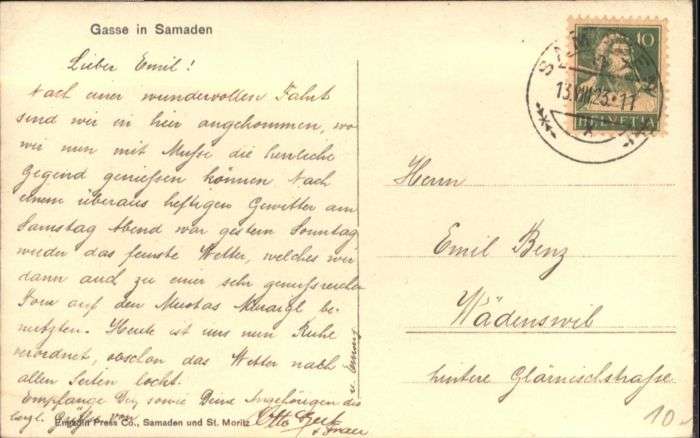 Gasse in Samaden
Lieber Emil!
Nach einer wundervollen Fahrt
sind wir in hier angekommen, wo
wir nun mit Musse die herrliche
Gegend genießen können Nach
einem überaus heftigen Gewitter am
Samstag Abend war gestern Sonntag
wieder das feinste Wetter, welches wir
dann auch zu einer sehr genussreichen
Tour auf den Muotas Muraigl be-
nutzten. Heute ist uns nun Ruhe
verordnet, obschon das Wetter nach
allen Seiten lockt.
Empfange Du, sowie Deine Angehörigen die
herzl. Grüsse von
Otto
u. Frau
Engadin Press Co., Samaden und St. Moritz
10
HELVETIA
13.VIII.23.-11
Herrn
Emil Benz
Wädenswil
hintere Glärnischstraße
10.-